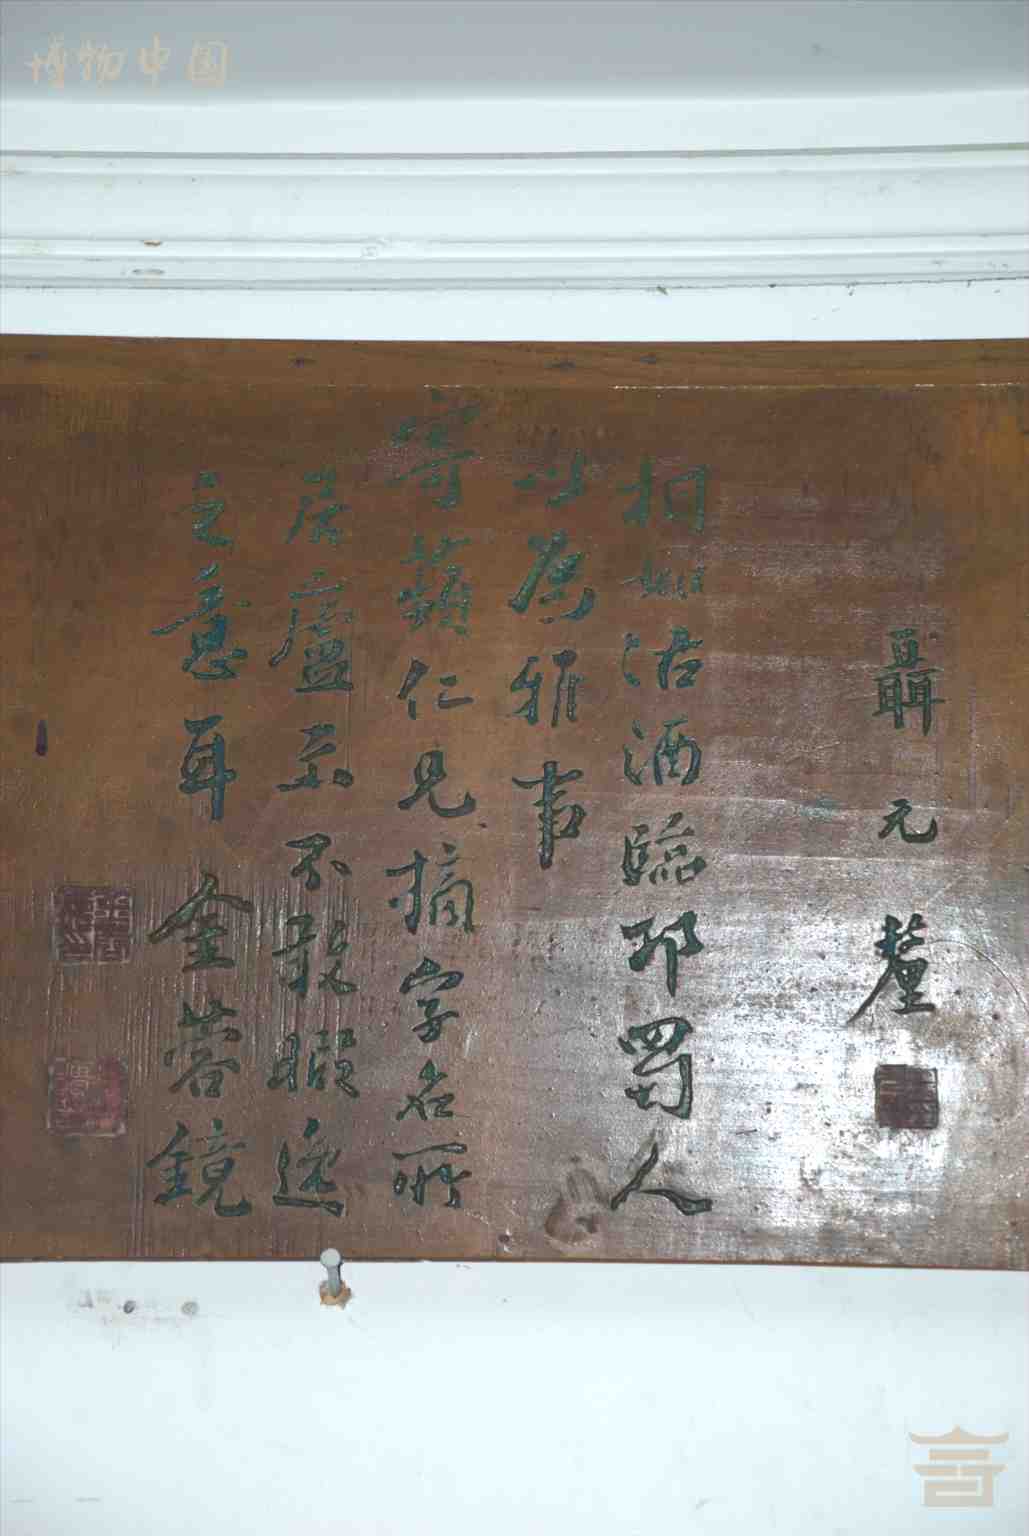 博物中国
聶元
相如沽酒臨邛蜀人
以為雅事
寄蘋仁兄摘字名所
居廬亦不敢暇逸
之意耳金蓉鏡